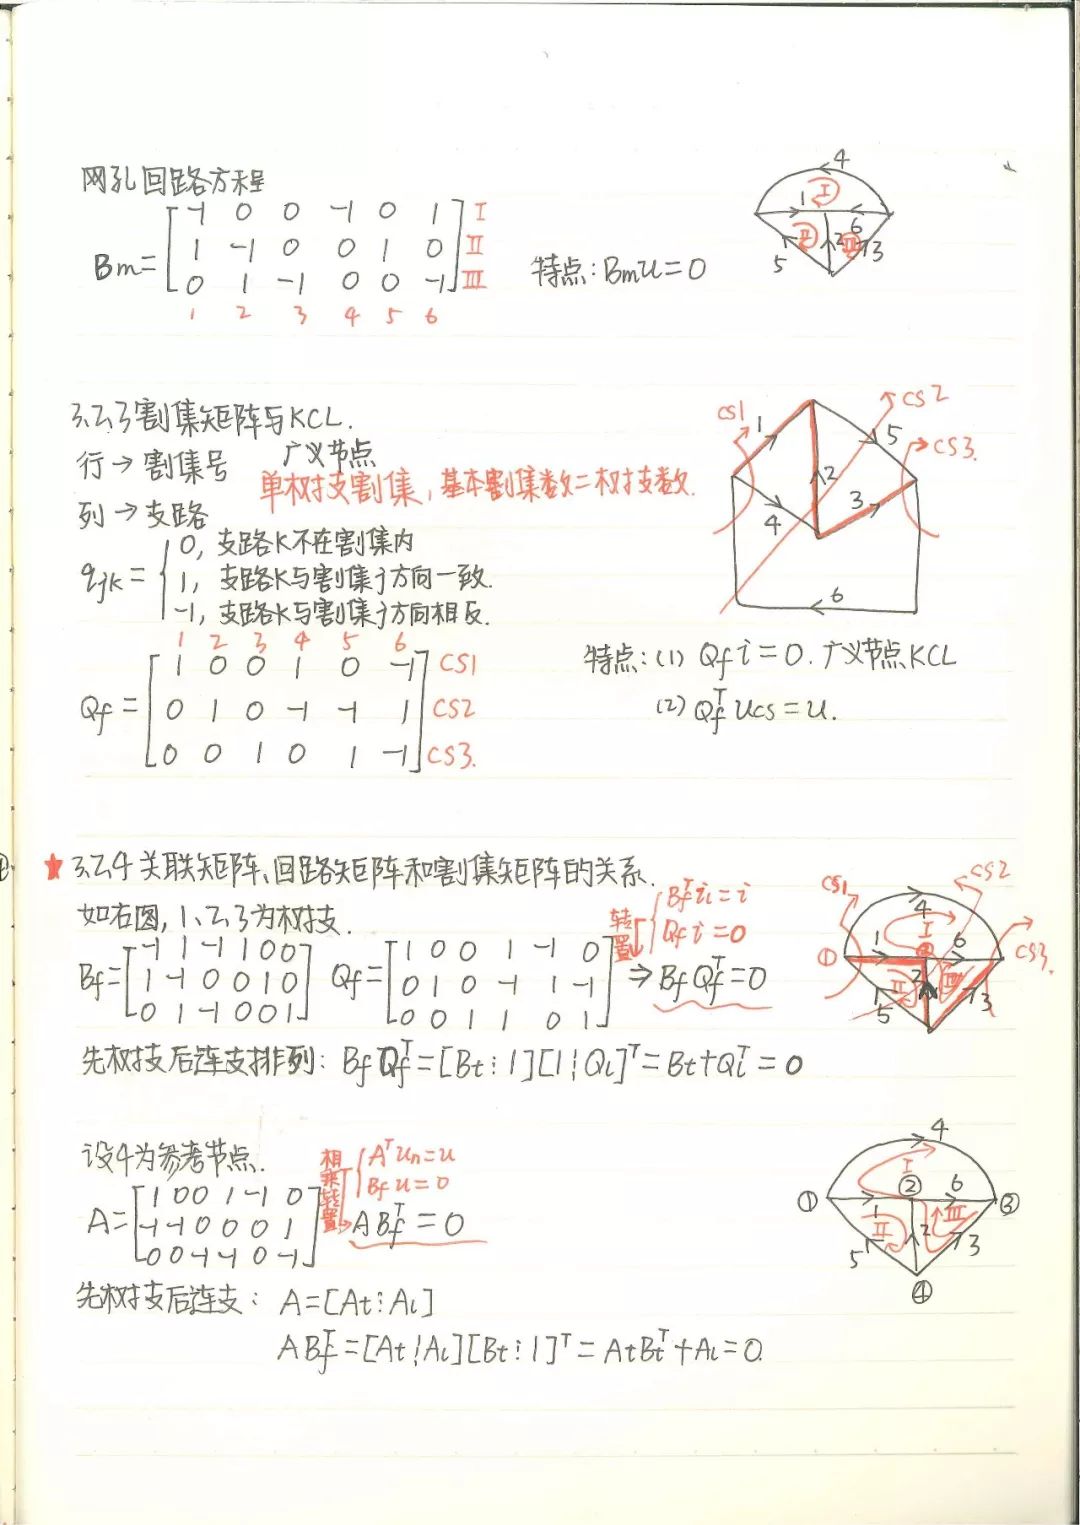 网孔回路方程
Bm=
-1 0 0 -1 0 1 I
1 -1 0 0 1 0 II
0 1 -1 0 0 -1 III
1 2 3 4 5 6
特点:Bmu=0
4
1 I 6
II 2 III 3
5
3.2.3割集矩阵与KCL.
行→割集号 广义节点
单树支割集,基本割集数=树支数.
列→支路
qjk=
0,支路K不在割集内
1,支路K与割集j方向一致.
-1,支路K与割集j方向相反.
1 2 3 4 5 6
Qf=
1 0 0 1 0 -1 CS1
0 1 0 -1 -1 1 CS2
0 0 1 0 1 -1 CS3.
CS1 CS2
1 5 CS3.
2
4 3
6
特点:(1) Qf i=0.广义节点KCL
(2) Qf^T Ucs=u.
★3.2.4关联矩阵、回路矩阵和割集矩阵的关系.
如右图,1、2、3为树支.
Bf=
-1 1 -1 1 0 0
1 -1 0 0 1 0
0 1 -1 0 0 1
Qf=
1 0 0 1 -1 0
0 1 0 -1 1 -1
0 0 1 1 0 1
转置
Bf^T il=i
Qf i=0
⇒ Bf Qf^T=0
CS1 CS2
4
① 1 I ② 6 CS3.
II 2 III 3
5
先树支后连支排列: Bf Qf^T=[Bt⋮1][1⋮Ql]^T=Bt+Ql^T=0
设4为参考节点.
A=
1 0 0 1 -1 0
-1 -1 0 0 0 1
0 0 -1 -1 0 -1
相乘转置
A^T un=u
Bf u=0
A Bf^T=0
4
① I ② 6 ③
1 II 2 III 3
5
④
先树支后连支: A=[At⋮Al]
A Bf^T=[At⋮Al][Bt⋮1]^T=At Bt^T+Al=0.